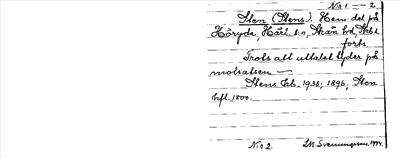 No 1 — 2.
Sten (Stens). Hem. del på
Höryda, Härl. s:n,
forts.
Trots att uttalet tyder på
motsatsen —
Stens Eb. 1938; 1896; Sten
Hfl. 1800.
No 2 J.M. Svenningsson 1974.